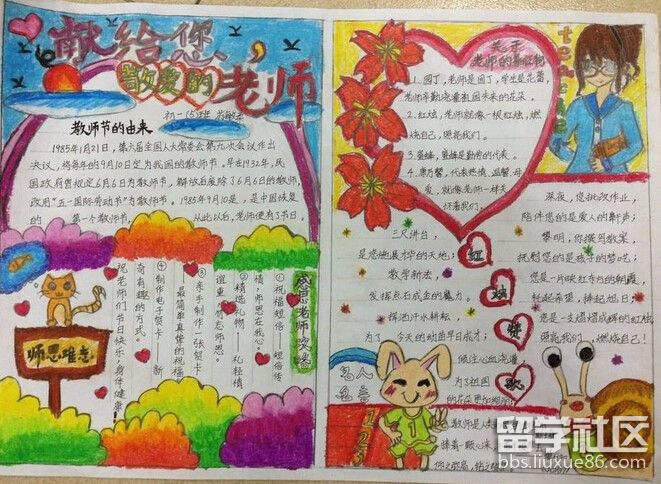 献给您，
敬爱的老师
初一(5)班
教师节的由来
1985年1月21日，第六届全国人大常委会第九次会议作出
决议，将每年的9月10日定为我国的教师节。早在1932年，民
国政府曾规定6月6日为教师节，解放后废除了6月6日的教师节，
改用“五一国际劳动节”为教师节。1985年9月10日，是中国恢复
的 第一个教师节， 从此以后，老师便有了节日。
感恩老师
①祝福短信——短信传
情，师恩在我心。
②精选礼物 礼轻情
谊重
③亲手制作一张贺卡——
最简单真挚的祝福
④制作电子贺卡——新
奇有趣的方式。
祝老师们节日快乐，身体健康！
师恩难忘
关于
老师的
1.园丁，老师是园丁，学生是花蕾，
老师辛勤浇灌祖国未来的花朵。
2.红烛，老师就像一根红烛，燃
烧自己，照亮我们。
3.蜜蜂，蜜蜂是勤劳的代表。
4.康乃馨，代表热情、温馨、母
爱，就像老师一样关
怀着我们。
teacher
三尺讲台，
是您施展才华的天地；
教学新法，
发挥点石成金的魔力。
挥洒汗水耕耘，
为了 今天的幼苗早日成才；
倾注心血浇灌
为了祖国
的花朵更加绚丽。
红
烛
颂
歌
深夜，您批改作业，
陪伴您的是爱人的鼾声；
黎明，你撰写教案，
抚慰您的是孩子的梦呓；
您是一片映红春的朝霞，
托起希望，捧起旭日；
您是一支熠熠成辉的红烛，
照亮我们，燃烧自己！
名人
名言
1
2
3
留学社区
bbs.liuxue86.com